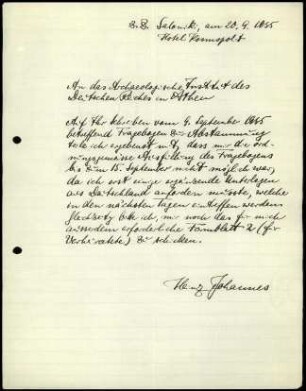 z. Z. Saloniki, am 20. 9. 1935
Hotel Kosmopolit
An das Archaeologische Institut des
Deutschen Reiches in Athen
Auf Ihr Schreiben vom 4. September 1935
betreffend Fragebogen zur Abstammung
teile ich ergebenst mit, dass mir die ord-
nungsgemässe Ausfüllung des Fragebogens
bis zum 15. September nicht möglich war,
da ich erst einige ergänzende Unterlagen
aus Deutschland anfordern musste, welche
in den nächsten Tagen eintreffen werden.
Gleichzeitig bitte ich, mir noch das für mich
ausserdem erforderliche Formblatt 2 (für
Verheiratete) zu schicken.
Heinz Johannes